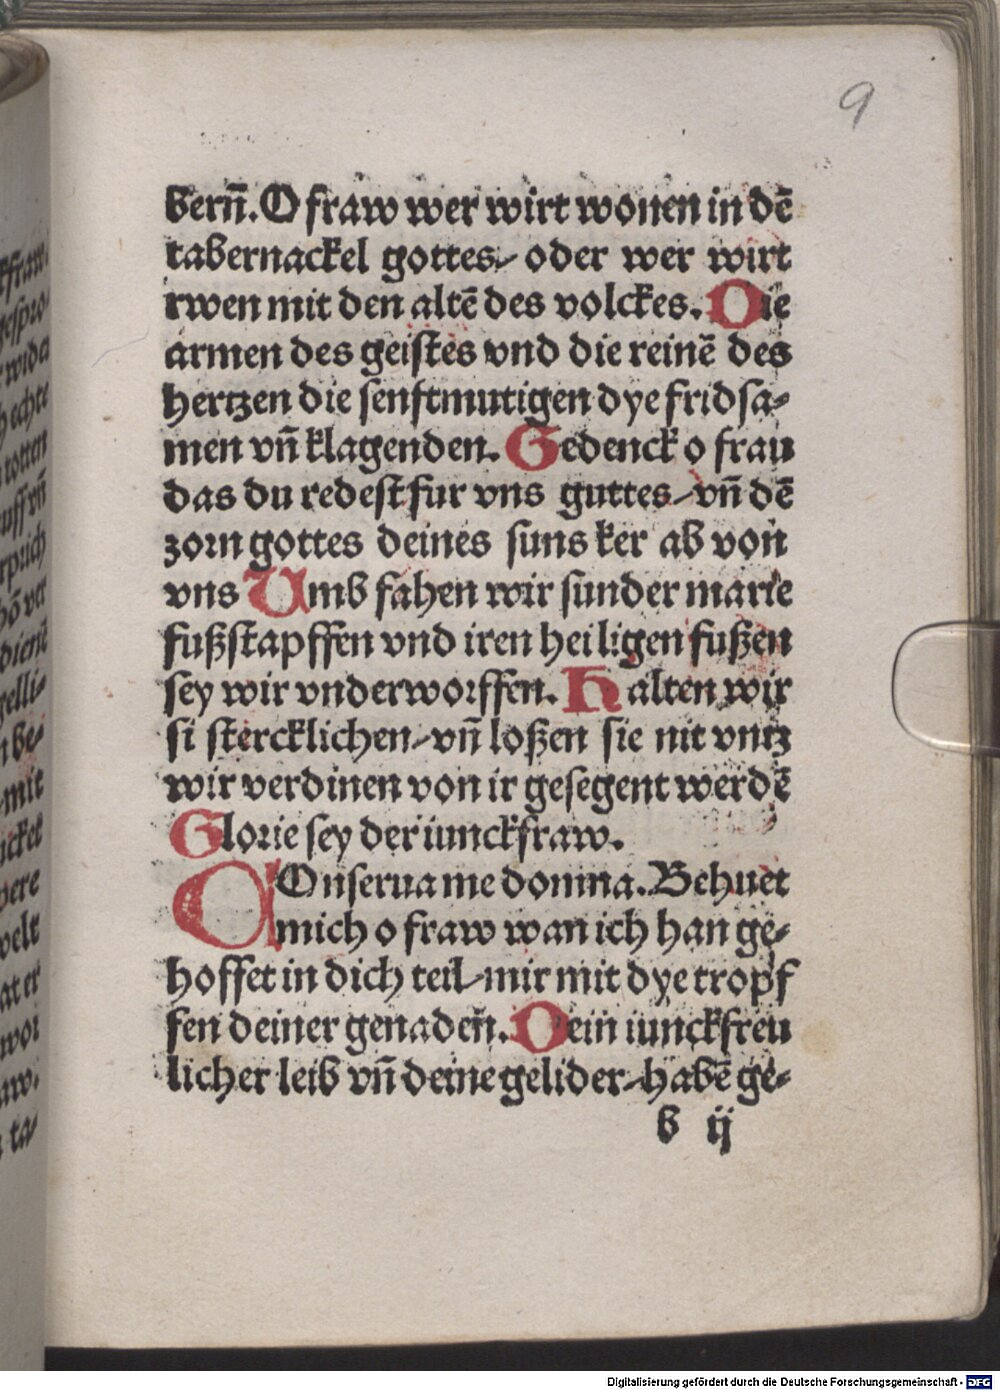 9
bern̄. O fraw wer wirt wonen in dē
tabernackel gottes / oder wer wirt
rwen mit den altē des volckes. Die
armen des geistes vnd die reinē des
hertzen die senftmutigen dye fridsa⸗
men vn̄ klagenden. Gedenck o frau
das du redest fur vns guttes / vn̄ dē
zorn gottes deines suns ker ab von
vns Umb fahen wir sunder marie
fußstapffen vnd iren heiligen fußen
sey wir vnderworffen. Halten wir
si stercklichen / vn̄ loßen sie nit vntz
wir verdinen von ir gesegent werdē
Glorie sey der iunckfraw.
COnserua me domina. Behuet
mich o fraw wan ich han ge⸗
hoffet in dich teil / mir mit dye tropf
fen deiner genaden̄. Dein iunckfreu
licher leib vn̄ deine gelider / habē ge⸗
b ij
Digitalisierung gefördert durch die Deutsche Forschungsgemeinschaft - DFG